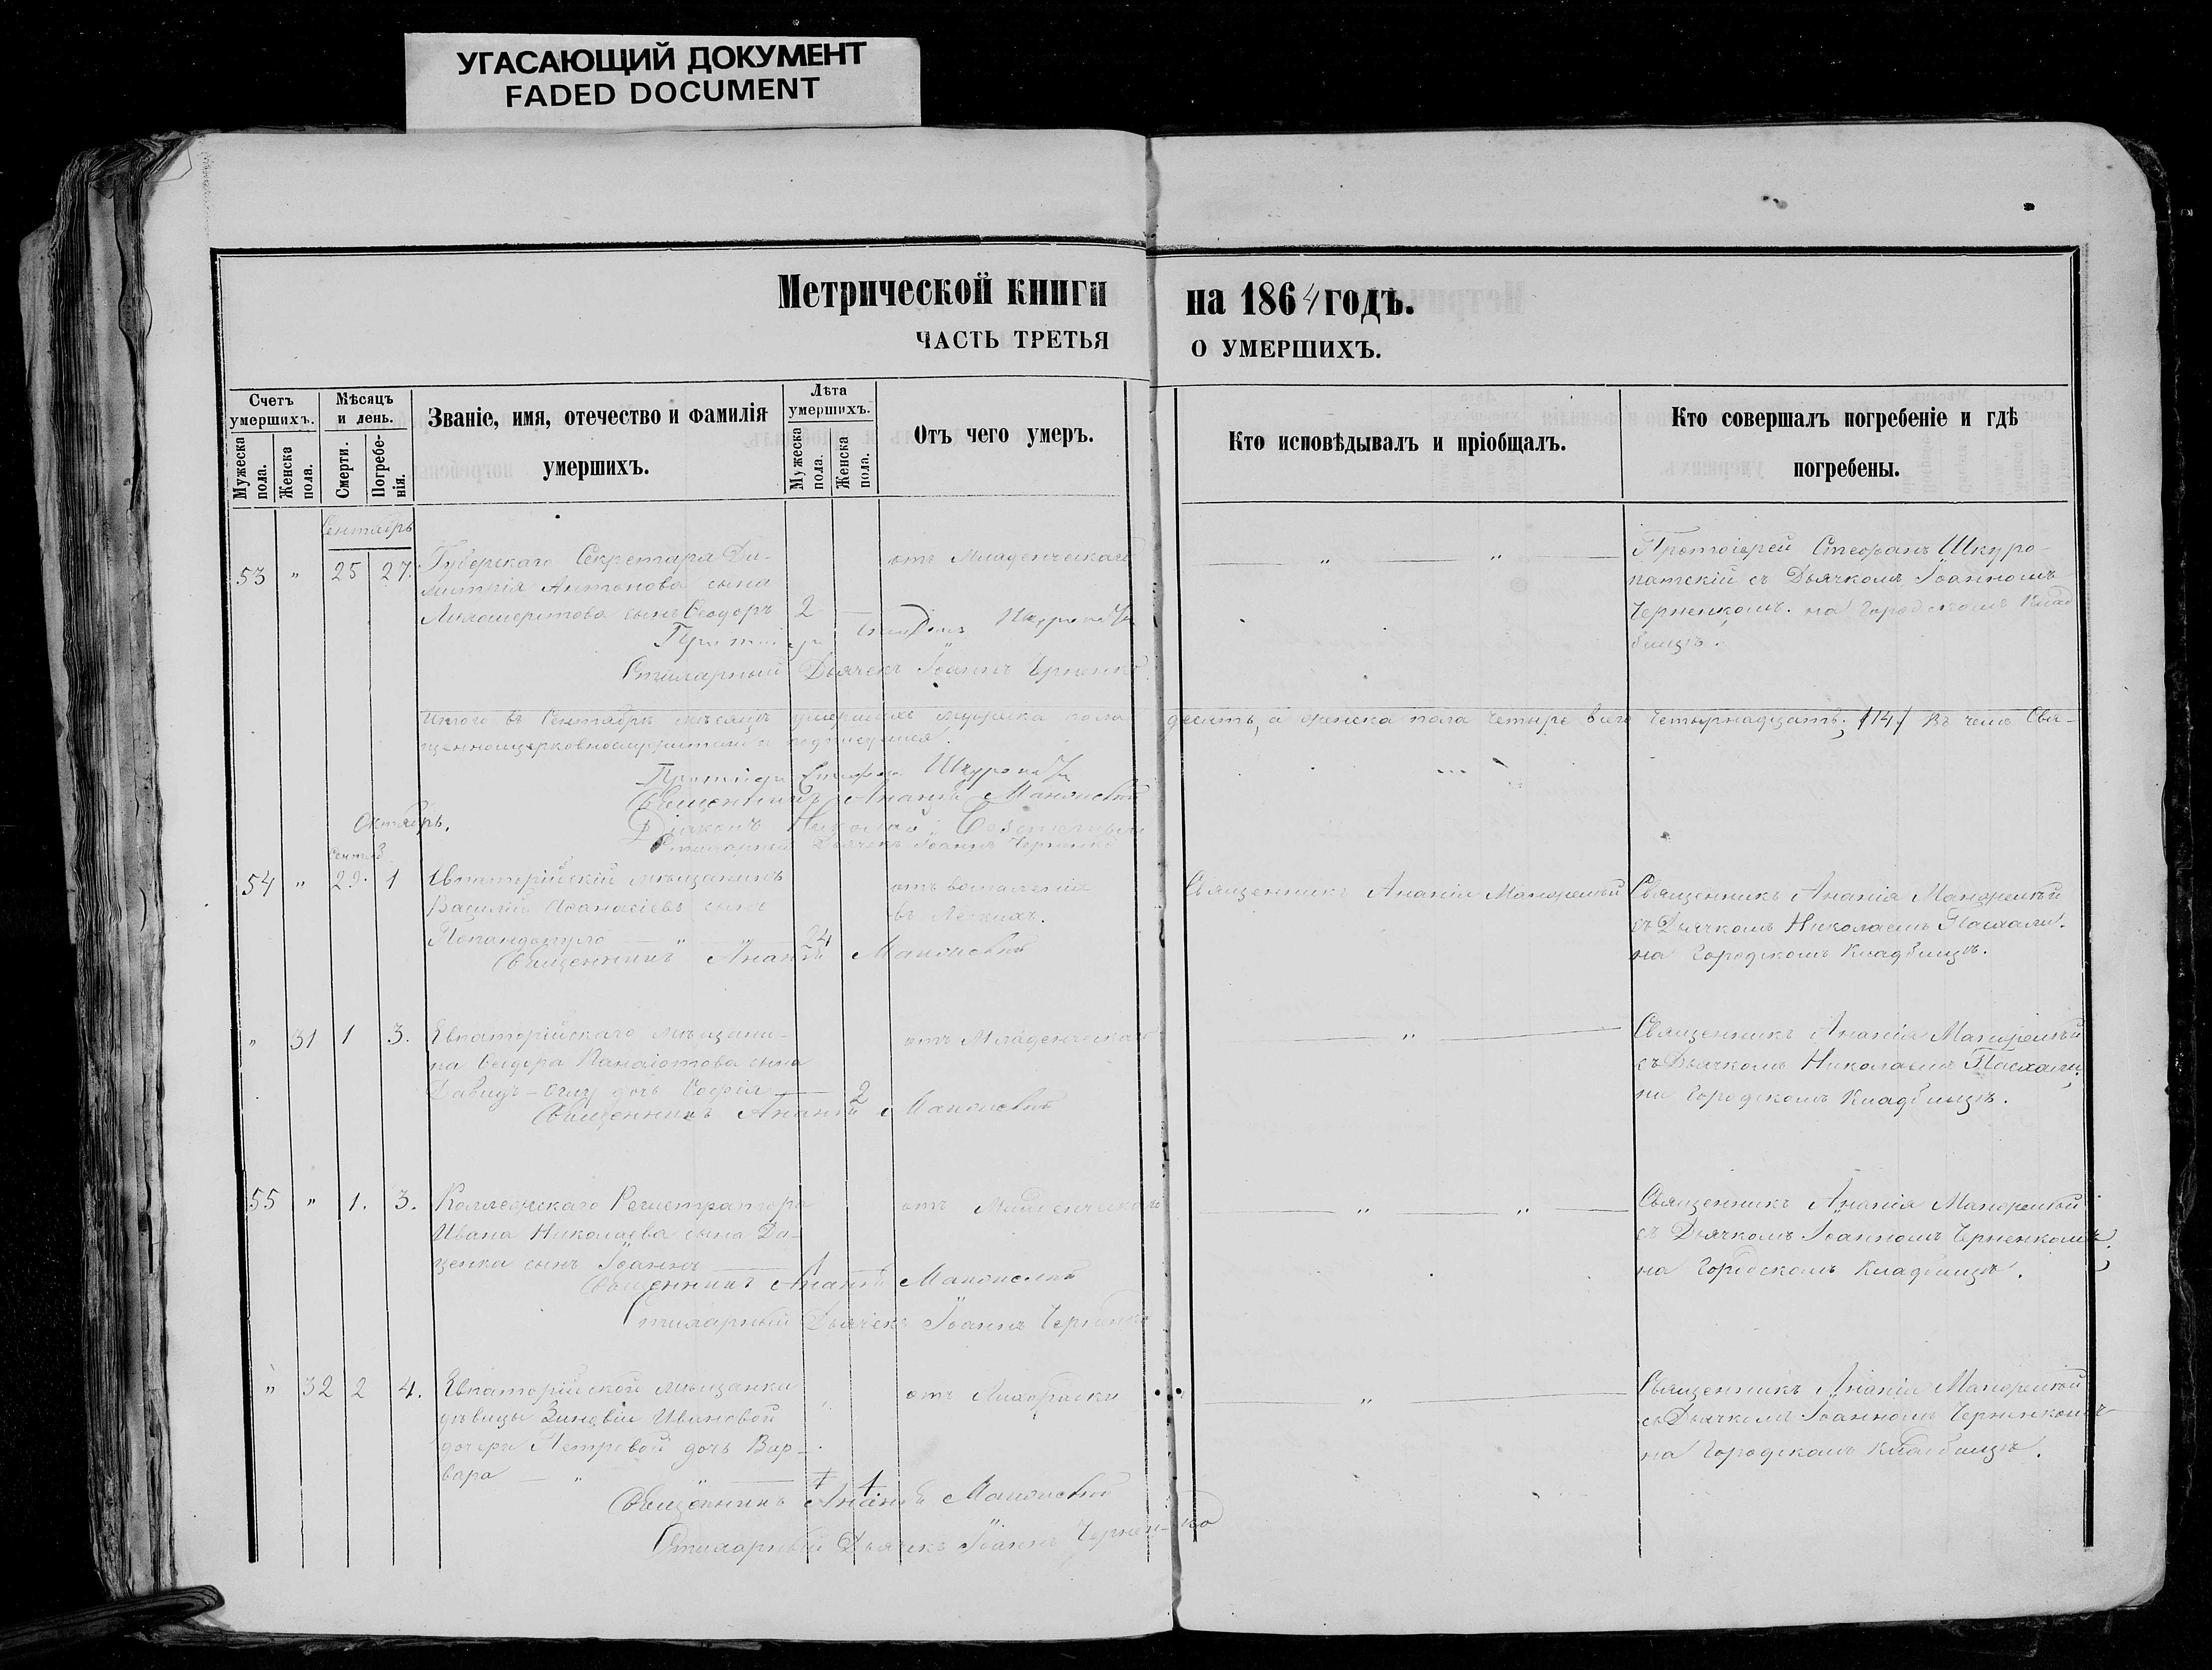 УГАСАЮЩИЙ ДОКУМЕНТ
FADED DOCUMENT
Метрической книги на 1864 годъ.
ЧАСТЬ ТРЕТЬЯ О УМЕРШИХЪ.
Счетъ умершихъ.
Мужеска пола.
Женска пола.
Мѣсяцъ и день.
Смерти.
Погребенія.
Званіе, имя, отечество и фамилія
умершихъ.
Лѣта умершихъ.
Мужеска пола.
Женска пола.
Отъ чего умеръ.
Кто исповѣдывалъ и пріобщалъ.
Кто совершалъ погребеніе и гдѣ
погребены.
Сентябрь
53 " 25 27.
Губерскаго Секретаря Ди-
митрія Антонова сына
сынъ Ѳеодоръ 2
отъ Младенческаго
Протоіерей Стефанъ Шкуро-
патскій съ Дьячкомъ Іоанномъ
Черненкомъ. на Городскомъ Клад
бищѣ.
Стихарный Дьячекъ Іоаннъ Черненко
Итого въ Сентябрѣ мѣсяцѣ умершихъ мужеска пола десять, а женска пола четыре всего четырнадцать. /14/ Въ чемъ Свя-
щенноцерковнослужители подписуемся.
Протоіерей Стефанъ
Священникъ Ананій
Діаконъ Николай
Стихарный Дьячекъ Іоаннъ Черненко
Октябрь.
Сентяб
54 " 29. 1
Евпаторійскій мѣщанинъ
Василій Аѳанасіевъ сынъ
Попандопуло " 24
отъ воспаленія
въ Легкихъ.
Священникъ Ананій
Священникъ Ананія
Священникъ Ананія
съ Дьячкомъ Николаемъ Пасхали.
на Городскомъ Кладбищѣ.
" 31 1 3.
Евпаторійскаго мѣщани-
на Ѳеодора Панаіотова сына
Давидъ-Оглу дочь Софія 2
отъ Младенческаго
Священникъ Ананій
Священникъ Ананія
съ Дьячкомъ Николаемъ Пасхали,
на Городскомъ Кладбищѣ.
55 " 1. 3.
Коллежскаго Регистратора
Ивана Николаева сына Да-
ценка сынъ Іоаннъ 1
отъ Младенческаго
Священникъ Ананій
Стихарный Дьячекъ Іоаннъ Черненко
Священникъ Ананія
съ Дьячкомъ Іоанномъ Черненкомъ,
на Городскомъ Кладбищѣ.
" 32 2 4.
Евпаторійской мѣщанки
дѣвицы Зиновіи Ивановой
дочери Петровой дочь Вар-
вара " " 1
отъ Лихорадки
Священникъ Ананій
Стихарный Дьячекъ Іоаннъ Черненко
Священникъ Ананія
съ Дьячкомъ Іоанномъ Черненкомъ
на Городскомъ Кладбищѣ.